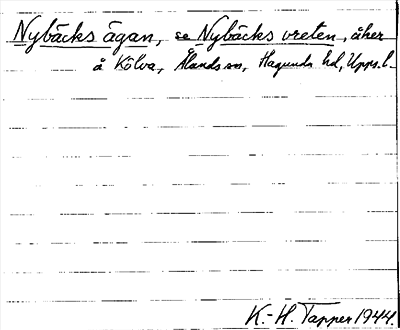 Nybäcks ägan, se Nybäcks vreten, åker
å Kölva, Ålands sn, Hagunda hd, Upps. l.
K.-H. Tapper 1944